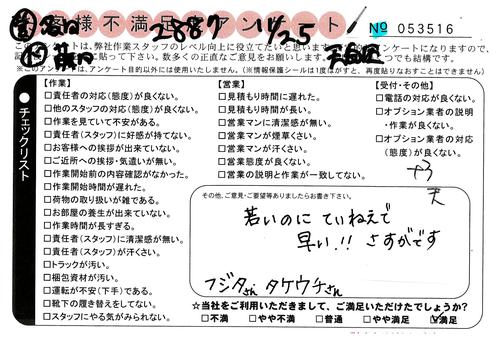 お客様不満足アンケート
2887 11/25
No 053516
このアンケートは、弊社作業スタッフのレベル向上に役立てたいと思います
数多くの正直なご意見をお願い
※(このアンケートは、アンケート目的以外には使用いたしません。)(※情報保護シールは1度はがすと、再度貼りなおすことはできません)
チェックリスト
【作業】
□責任者の対応(態度)が良くない。
□他のスタッフの対応(態度)が良くない。
□作業を見ていて不安がある。
□責任者(スタッフ)に好感が持てない。
□お客様への挨拶が出来ていない。
□ご近所への挨拶・気遣いが無い。
□作業開始前の内容確認がなかった。
□作業開始時間が遅れた。
□荷物の取り扱いが雑である。
□お部屋の養生が出来ていない。
□作業時間が長すぎる。
□責任者(スタッフ)に清潔感が無い。
□責任者(スタッフ)が汗くさい。
□トラックが汚い。
□梱包資材が汚い。
□運転が不安(下手)である。
□靴下の履き替えをしてない。
□スタッフにやる気がみられない。
【営業】
□見積もり時間に遅れた。
□見積もり時間が長い。
□営業マンに清潔感が無い。
□営業マンが煙草くさい。
□営業マンが汗くさい。
□営業態度が良くない。
□営業の説明と作業が一致してない。
【受付・その他】
□電話の対応が良くない。
□オプション業者の説明
・作業が良くない。
□オプション業者の対応
(態度)が良くない。
その他、ご意見・ご要望等ありましたらお書き下さい。
若いのに ていねえで
早い!! さすがです
フジタさん タケウチさん
☆当社をご利用いただきまして、ご満足いただけたでしょうか?
□不満 □やや不満 □普通 □やや満足 ☑満足